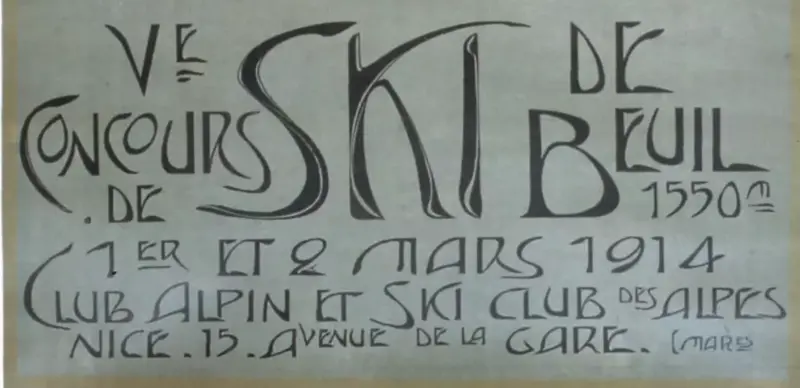 Ve CONCOURS DE SKI DE BEUIL 1550m
1ER ET 2 MARS 1914
CLUB ALPIN ET SKI CLUB DES ALPES
NICE. 15. AVENUE DE LA GARE.